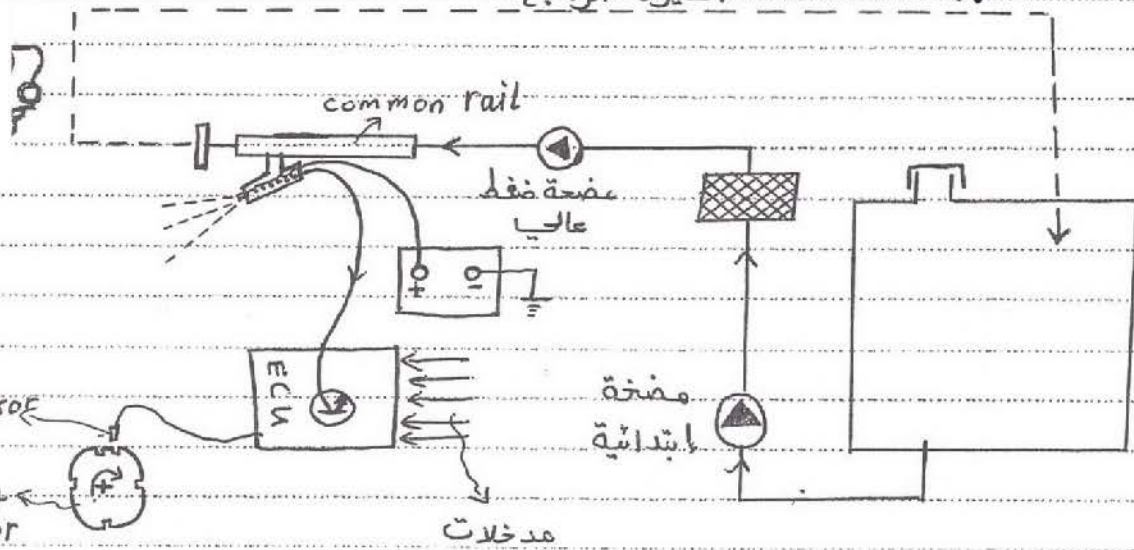 common rail
مضخة ضغط
عالي
+ -
ECU
مضخة
إبتدائية
مدخلات